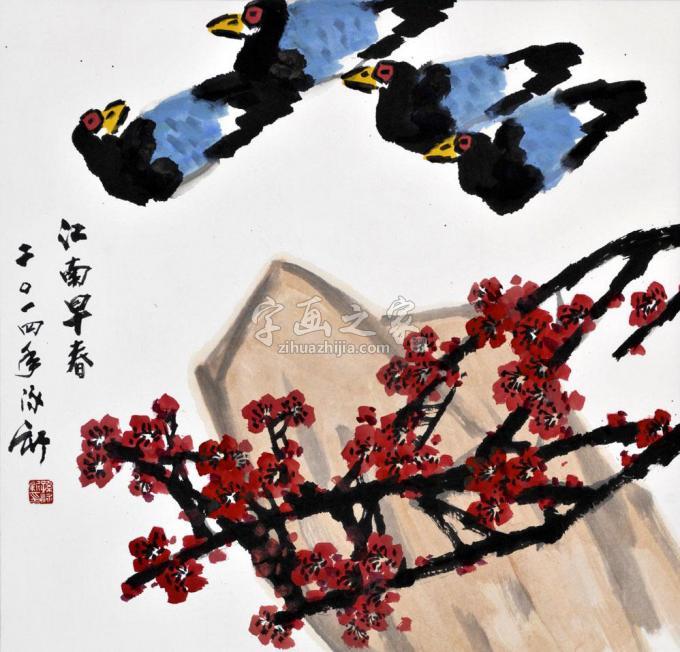 江南早春
二〇一四年
字画之家
zihuazhijia.com